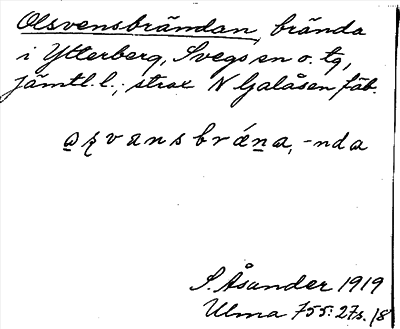 Olsvensbrändan, brända
i Ytterberg, Svegs sn o. tg,
jämtl. l.; strax N Galåsen, fäb.
a̲ɽvansbrǽn̲a, -nda
S. Åsander 1919
Ulma 755: 27 s. 18